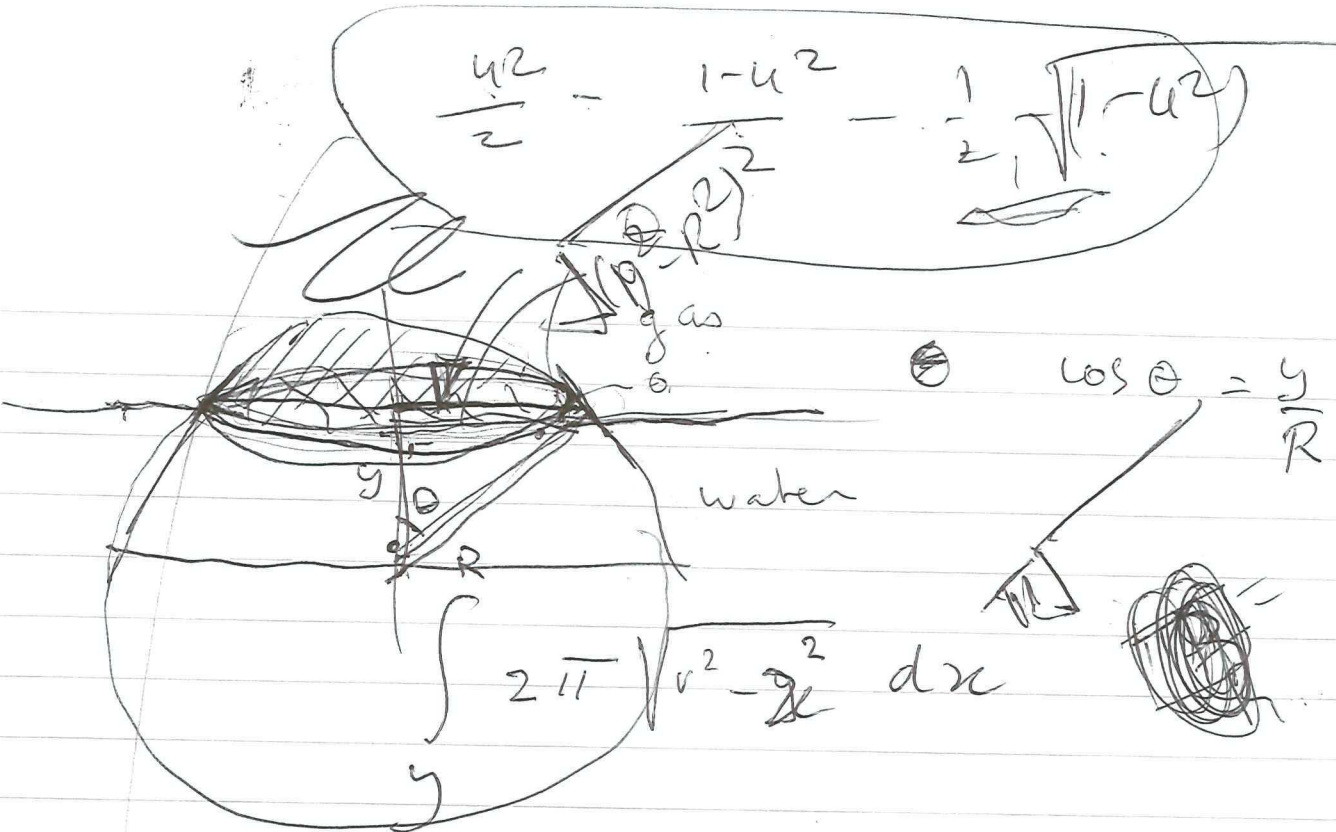 u2/2 - 1-u^2 - 1/2 √(1-u^2)
R^2)^2
gas
θ
θ cos θ = y/R
y θ
water
R
∫ 2π √(r^2 - x^2) dx
y